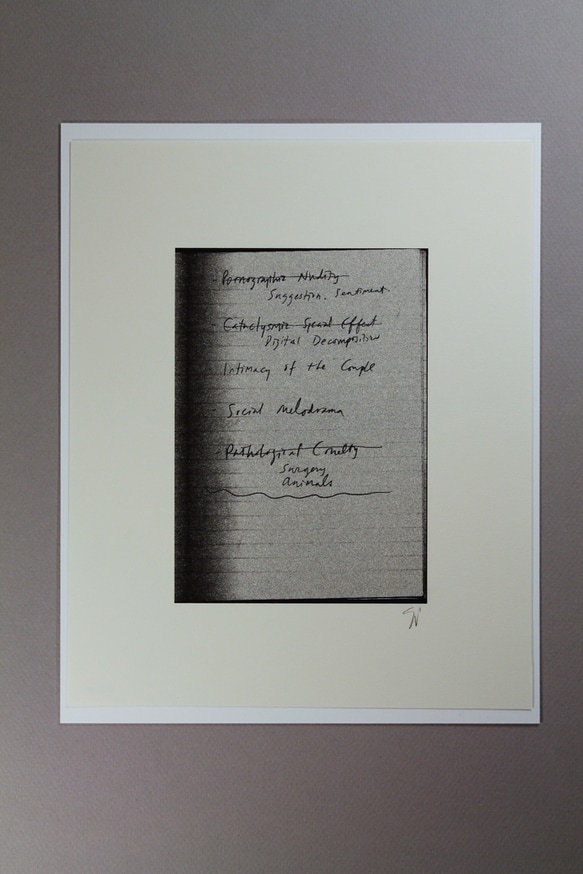 - Pornographic Nudity
Suggestion. Sentiment.
- Cataclysmic Special Effect
Digital Decomposition
Intimacy of the Couple
- Social Melodrama
- Pathological Cruelty
Surgery
Animals